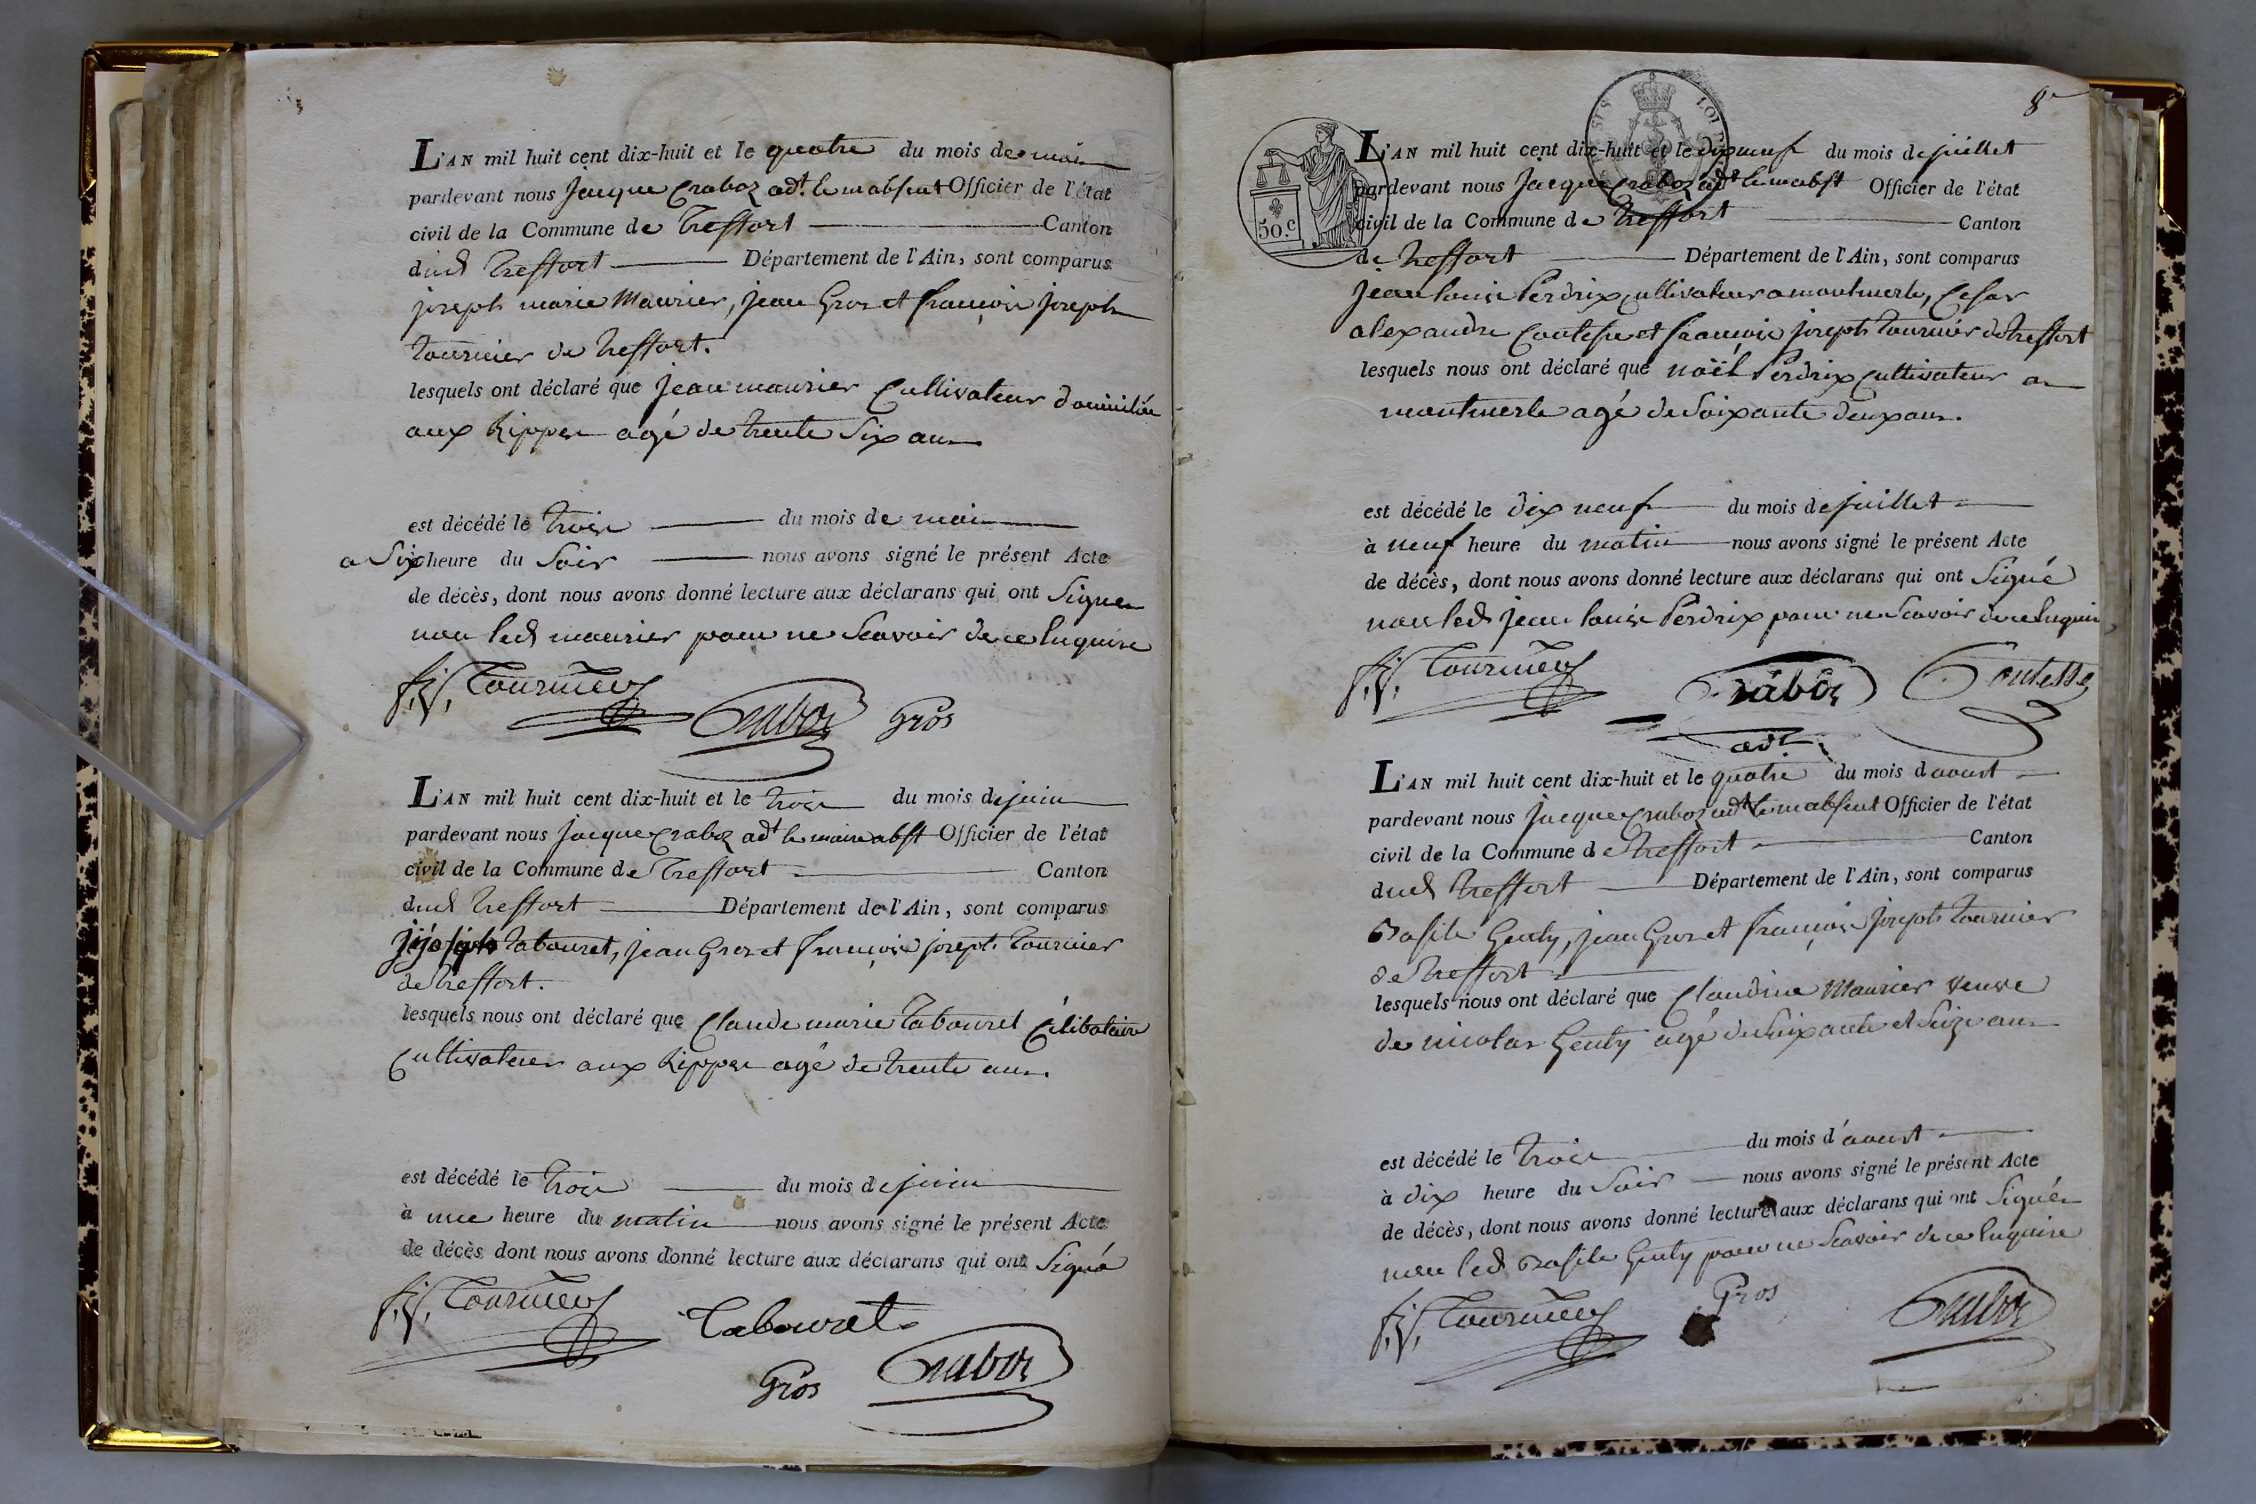 L'AN mil huit cent dix-huit et le quatre du mois de mai
pardevant nous Jacque Craboz adt. le m absent Officier de l'état
civil de la Commune de Treffort Canton
dud Treffort Département de l'Ain, sont comparus
joseph marie Maurier, jean Gros et françois joseph
tournier de treffort.
lesquels ont déclaré que jean maurier Cultivateur domicilié
aux Rippes agé de trente Six ans
est décédé le trois du mois de mai
a Six heure du Soir nous avons signé le présent Acte
de décès, dont nous avons donné lecture aux déclarans qui ont Signer
non led maurier pour ne Scavoir de ce Enquire
f. j. Tournier
Craboz Gros
L'AN mil huit cent dix-huit et le trois du mois de juin
pardevant nous Jacque Craboz adt le maire abst Officier de l'état
civil de la Commune de Treffort Canton
dud Treffort Département de l'Ain, sont comparus
joseph tabouret, jean Gros et françois joseph tournier
de treffort.
lesquels nous ont déclaré que Claude marie tabouret Célibataire
Cultivateur aux Rippes agé de trente ans.
est décédé le trois du mois de juin
à une heure du matin nous avons signé le présent Acte
de décès dont nous avons donné lecture aux déclarans qui ont Signé
f. j. Tournier Tabouret
Gros Craboz
8e
50.c
L'AN mil huit cent dix-huit et le dix neuf du mois de juillet
pardevant nous Jacque Craboz adt le m abst Officier de l'état
civil de la Commune de treffort Canton
de treffort Département de l'Ain, sont comparus
Jean louis Perdrix cultivateur a montmerle, Cesar
alexandre Contesse et françois joseph tournier de treffort
lesquels nous ont déclaré que noël Perdrix cultivateur a
montmerle agé de Soixante deux ans.
est décédé le dix neuf du mois de juillet
à neuf heure du matin nous avons signé le présent Acte
de décès, dont nous avons donné lecture aux déclarans qui ont Signé
non led jean louis Perdrix pour ne Scavoir de ce Enquire
f. j. Tournier Craboz Contesse
adt
L'AN mil huit cent dix-huit et le quatre du mois d'aoust
pardevant nous Jacque Craboz adt le m absent Officier de l'état
civil de la Commune de treffort Canton
dud treffort Département de l'Ain, sont comparus
Basile Genty, jean Gros et françois joseph tournier
de treffort
lesquels nous ont déclaré que Claudine Maurier veuve
de nicolas Genty agé de Soixante et Seize ans
est décédé le trois du mois d'aoust
à dix heure du Soir nous avons signé le présent Acte
de décès, dont nous avons donné lecture aux déclarans qui ont Signér
non led Basile Genty pour ne Scavoir de ce Enquire
f. j. Tournier Gros Craboz